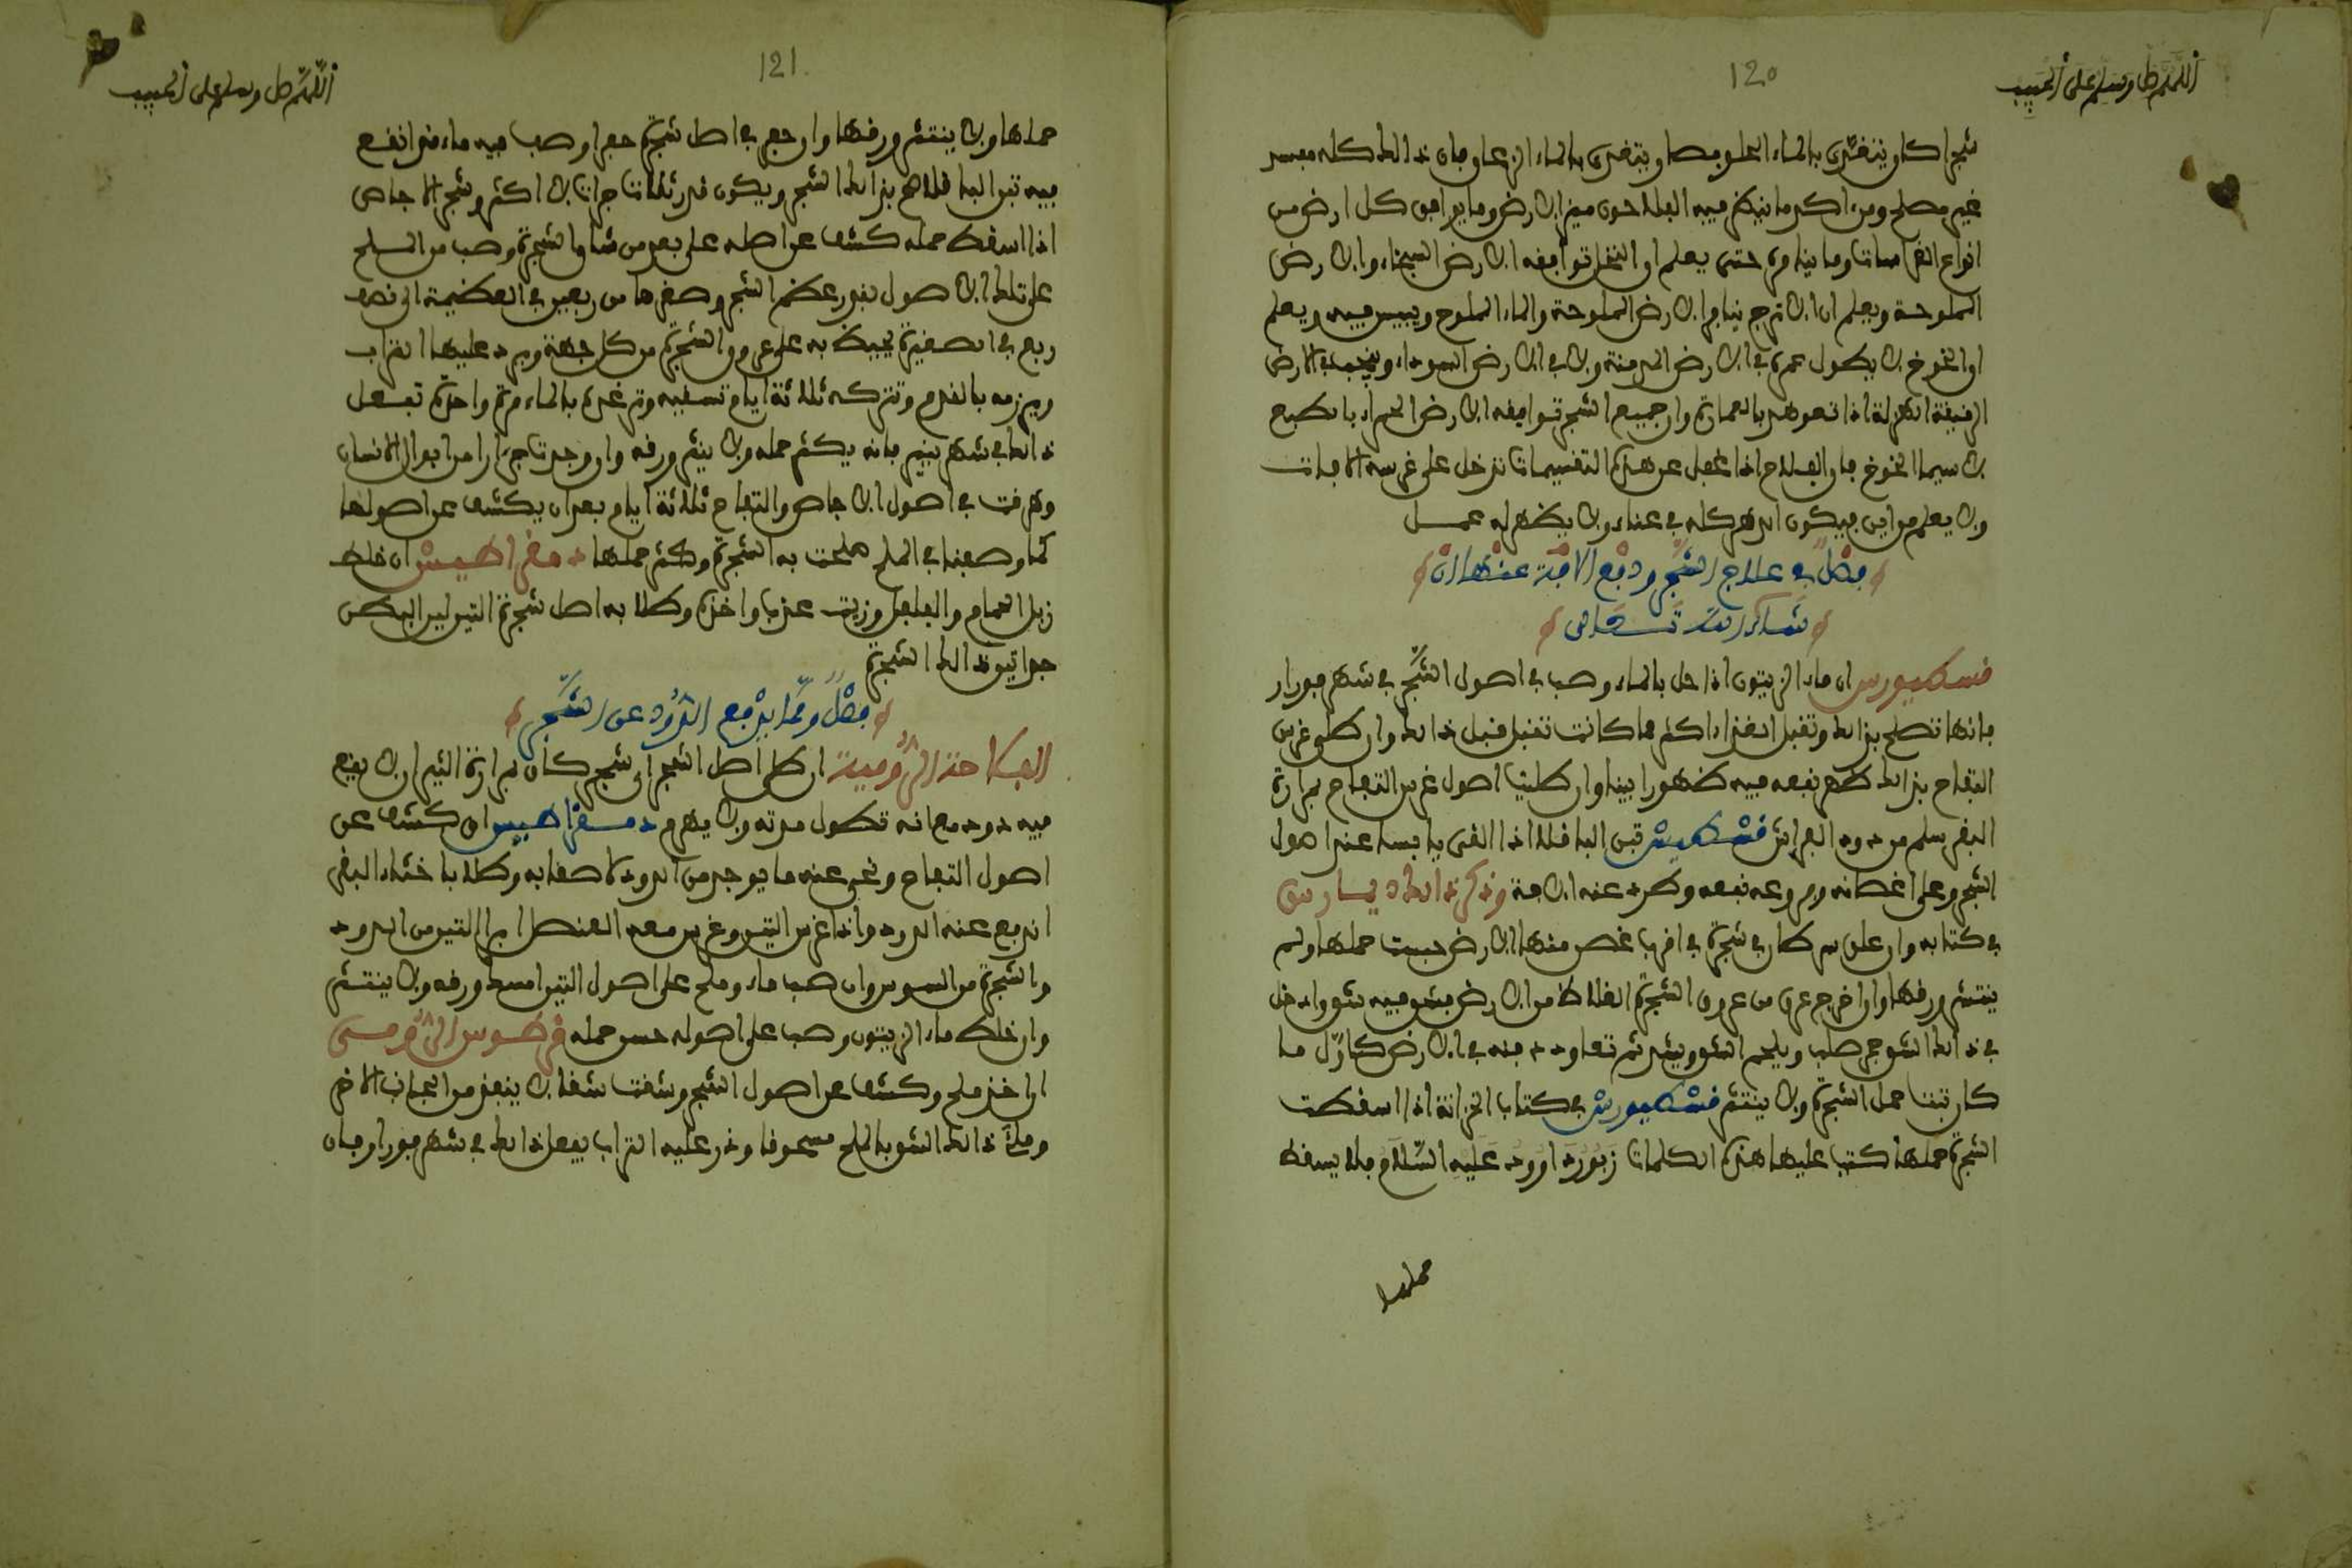 اللهم صل وسلم على الحبيب
120
شجرا كان يتغذى بالماء الحلو فصار يتغذى بالماء الزعاق فإن ذالك كله مفسد
غير مصلح ومن اكد ما ينظر فيه الفلاحون ميز الارض وما يوافق كل ارض من
انواع الغراسات وما ينافره حتى يعلم ان النخل توافقه الارض السبخاء والارض
المملوحة ويعلم ان الاترج ينافر الارض المملوحة والماء المملوح وييبس فيه ويعلم
ان الخوخ لا يطول عمره في الارض المدمنة ولا في الارض السوداء وينجب في الارض
الرقيقة الهزلة اذا تعوهد بالعمارة وان جميع الشجر توافقه الارض الحمراء بالطبع
لا سيما الخوخ فإن الفلاح اذا غفل عن هذه التقسيمات تدخل على غرسه الافات
ولا يعلم من اين فيكون الدهر كله في عناء ولا يظهر له عمل
فصل في علاج الشجر ودفع الافة عنها ان
شاء الله تعالى
قسطيوس ان ماء الزيتون اذا حل بالماء وصب في اصول الشجر في شهر فورار
فإنها تصلح بذالك وتقبل الغذاء اكثر مما كانت تقبل قبل ذالك وان طلي غرس
التفاح بذالك ظهر نفعه فيه ظهورا بينا وان طليت اصول غرس التفاح بمرارة
البقر سلم من دود الفراش قسطيس تبن الباقلا اذا القي يابسا عند اصول
الشجر وعلى اغصانه وفروعه نفعه وطرد عنه الافة وذكر ذالك ديسارس
في كتابه وان علق سرطان في شجرة في اقرب غصن منها الارض حبست حملها ولم
ينتثر ورقها وان اخرج عرق من عروق الشجرة الغلاظ من الارض فشق فيه شق وادخل
في ذالك الشق حجر صلب ويلحم الشق ويشد ثم تعاود دفنه في الارض كاول ما
كان ثبت حمل الشجرة ولا ينتثر قسطيوس في كتاب الخزانة اذا اسقطت
الشجرة حملها كتب عليها هذه الكلمات زبور داوود عليه السلام فلا يسقط
حملها
اللهم صل وسلم على الحبيب
121
حملها ولا ينتثر ورقها وان حفر في اصل شجرة حفرا وصب فيه ماء قد انقع
فيه تبن الباقلا صح بذالك الشجر ويكون قدر ثلاث جرات لا اكثر وشجر الاجاص
اذا اسقط حمله كشف عن اصله على بعد من ساق الشجرة وصب من الملح
على تلك الاصول بقدر عظم الشجر وصغرها من ربعين في العظيمة الى نصف
ربع في الصغيرة يحيط به على عروق الشجرة من كل جهة ويرد عليها التراب
ويرزمه بالقدم وتتركه ثلاثة ايام تسقيه وتغره بالماء مرة واحدة تفعل
ذالك في شهر ينير فإنه يكثر حمله ولا ينثر ورقه وان وجدت جرارا من ابوال الانسان
وهرقت في اصول الاجاص والتفاح ثلاثة ايام بعد ان يكشف عن اصولها
كما وصفنا في الملح صلحت به الشجرة وكثر حملها دمقراطيس ان خلط
زبل الحمام والفلفل وزيت عذب واخذه وطلا به اصل شجرة التين ليد البطن
جواتيو ذالك الشجرة
فصل ومما يدفع الدود عن الشجر
الفلاحة الرومية ان طلي اصل الشجر اي شجر كان بمرارة الثيران لا يقع
فيه دود مع انه تطول مدته ولا يهرم دمقراطيس ان كشف عن
اصول التفاح ونحي عنه ما يوجد من الدود لاصقا به وطلا باخثاء البقر
اندفع عنه الدود واذا غرس التين وغرس معه العنصل ابرا التين من الدود
والشجرة من السوس وان صب ماء وملح على اصول التين امسك ورقه ولا ينتثر
وان خلط ماء الزيتون وصب على اصوله حسن حمله قرطوس الرومي
ان اخذ ملح وكشف عن اصول الشجر وشقت شقا لا ينفذ من الجانب الاخر
وملأ ذالك الشق بالملح مسحوقا وذر عليه التراب يفعل ذالك في شهر فورار فإن